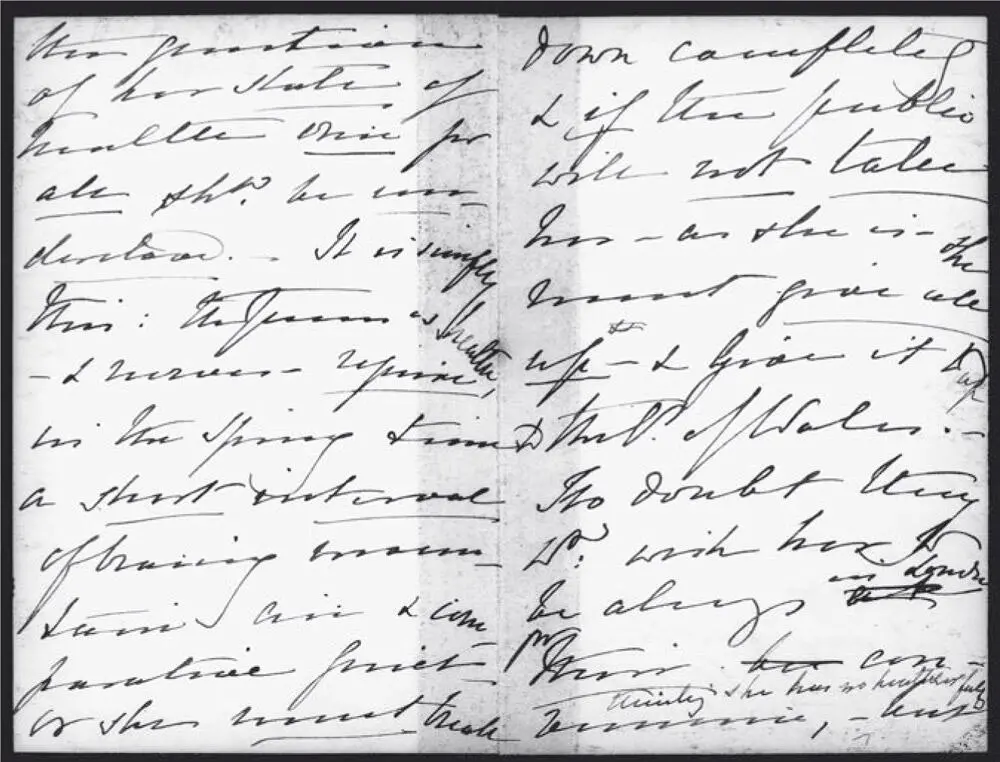 the question
of her state of
health once for
all shd. be un-
derstood. – It is simply
this: The Queen's health,
– & nerves – require
in the Spring time
a short interval
of bracing moun-
tain air & com-
parative quiet –
or she must break
down completely
& if the public
will not take
her – as she is – she
must give all
up – & give it up
to the P. of Wales. –
No doubt they
wd. wish her to
be always in London
for their con-
thinks she has no
venience, – but